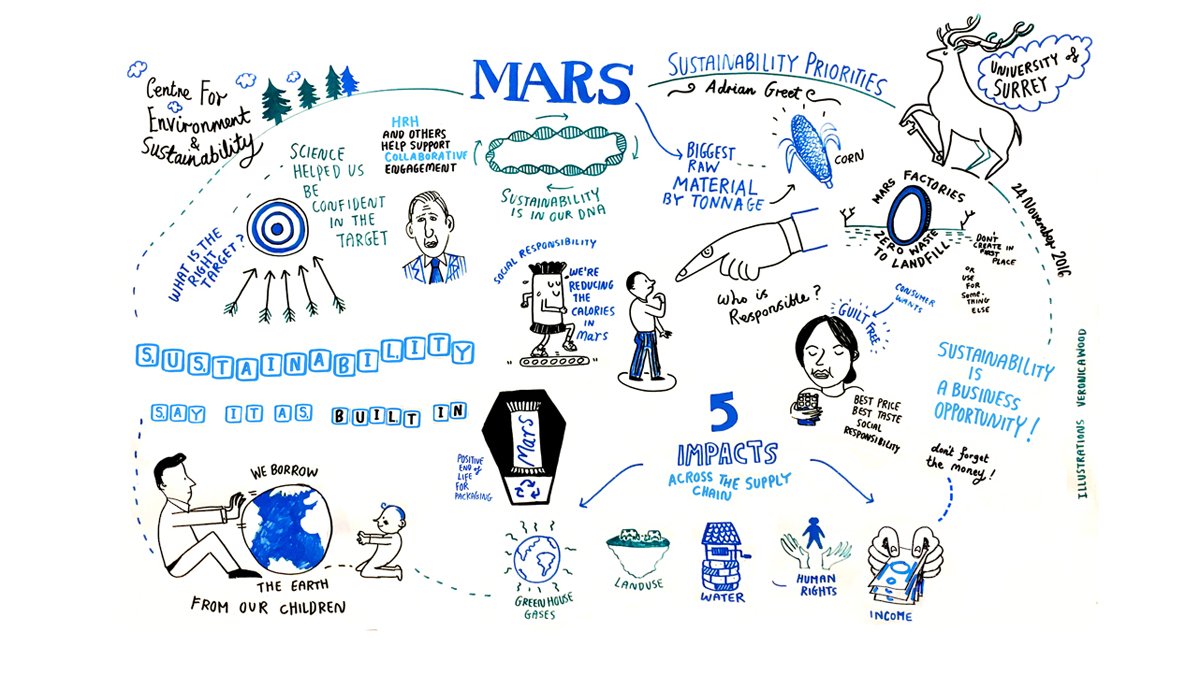 Centre For
Environment
&
Sustainability
MARS
SUSTAINABILITY PRIORITIES
Adrian Greet
UNIVERSITY of
SURREY
24 November 2016
SCIENCE
HELPED US
BE
CONFIDENT
IN THE
TARGET
WHAT IS THE
RIGHT
TARGET?
HRH
AND OTHERS
HELP SUPPORT
COLLABORATIVE
ENGAGEMENT
SUSTAINABILITY
IS IN OUR DNA
BIGGEST
RAW
MATERIAL
BY TONNAGE
CORN
MARS FACTORIES
ZERO WASTE
TO LANDFILL
DON'T
CREATE IN
FIRST
PLACE
OR
USE
FOR
SOME-
THING
ELSE
SOCIAL RESPONSIBILITY
WE'RE
REDUCING
THE
CALORIES
IN
Mars
Who is
Responsible?
CONSUMER
WANTS
GUILT FREE
BEST PRICE
BEST TASTE
SOCIAL
RESPONSIBILITY
SUSTAINABILITY
IS
A BUSINESS
OPPORTUNITY!
don't forget
the money!
ILLUSTRATIONS VERONICA WOOD
SUSTAINABILITY
SAY IT AS BUILT IN
POSITIVE
END of
LIFE
FOR
PACKAGING
Mars
5
IMPACTS
ACROSS THE SUPPLY
CHAIN
WE BORROW
THE EARTH
FROM OUR CHILDREN
GREENHOUSE
GASES
LANDUSE
WATER
HUMAN
RIGHTS
INCOME